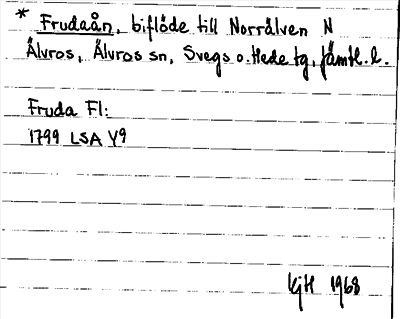 * Frudaån, biflöde till Norrälven N
Älvros, Älvros sn, Svegs o. Hede tg, Jämtl. l.
Fruda Fl:
1799 LSA Y9
KjH 1968